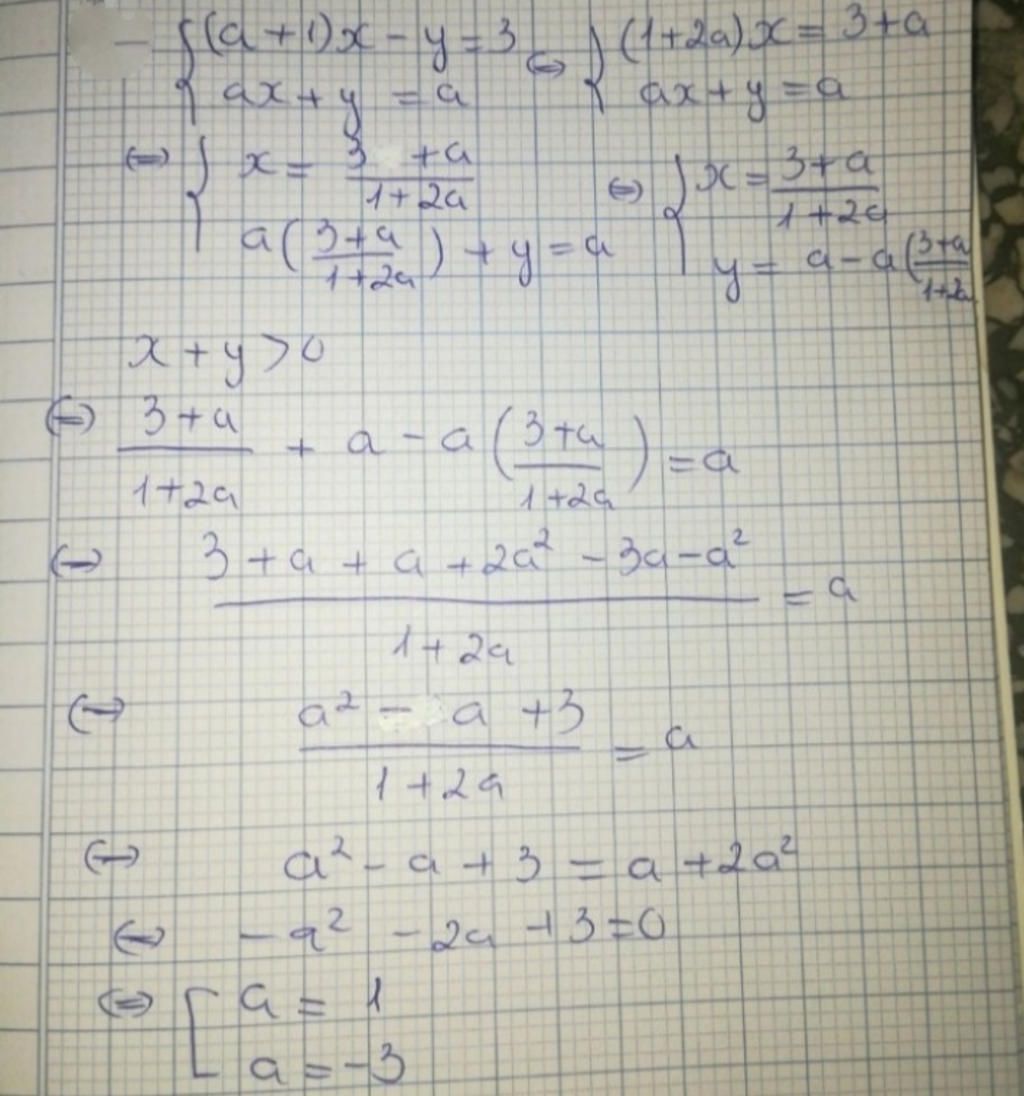 — { (a+1)x - y = 3 ⇔ { (1+2a)x = 3+a
ax + y = a ax + y = a
⇔ { x = (3 +a)/(1+2a) ⇔ { x = (3+a)/(1+2a)
a((3+a)/(1+2a)) + y = a y = a - a((3+a)/(1+2a)
x + y > 0
⇔ (3+a)/(1+2a) + a - a((3+a)/(1+2a)) = a
⇔ (3 + a + a + 2a² - 3a - a²)/(1+2a) = a
⇔ (a² - a + 3)/(1+2a) = a
⇔ a² - a + 3 = a + 2a²
⇔ -a² - 2a + 3 = 0
⇔ [ a = 1
a = -3